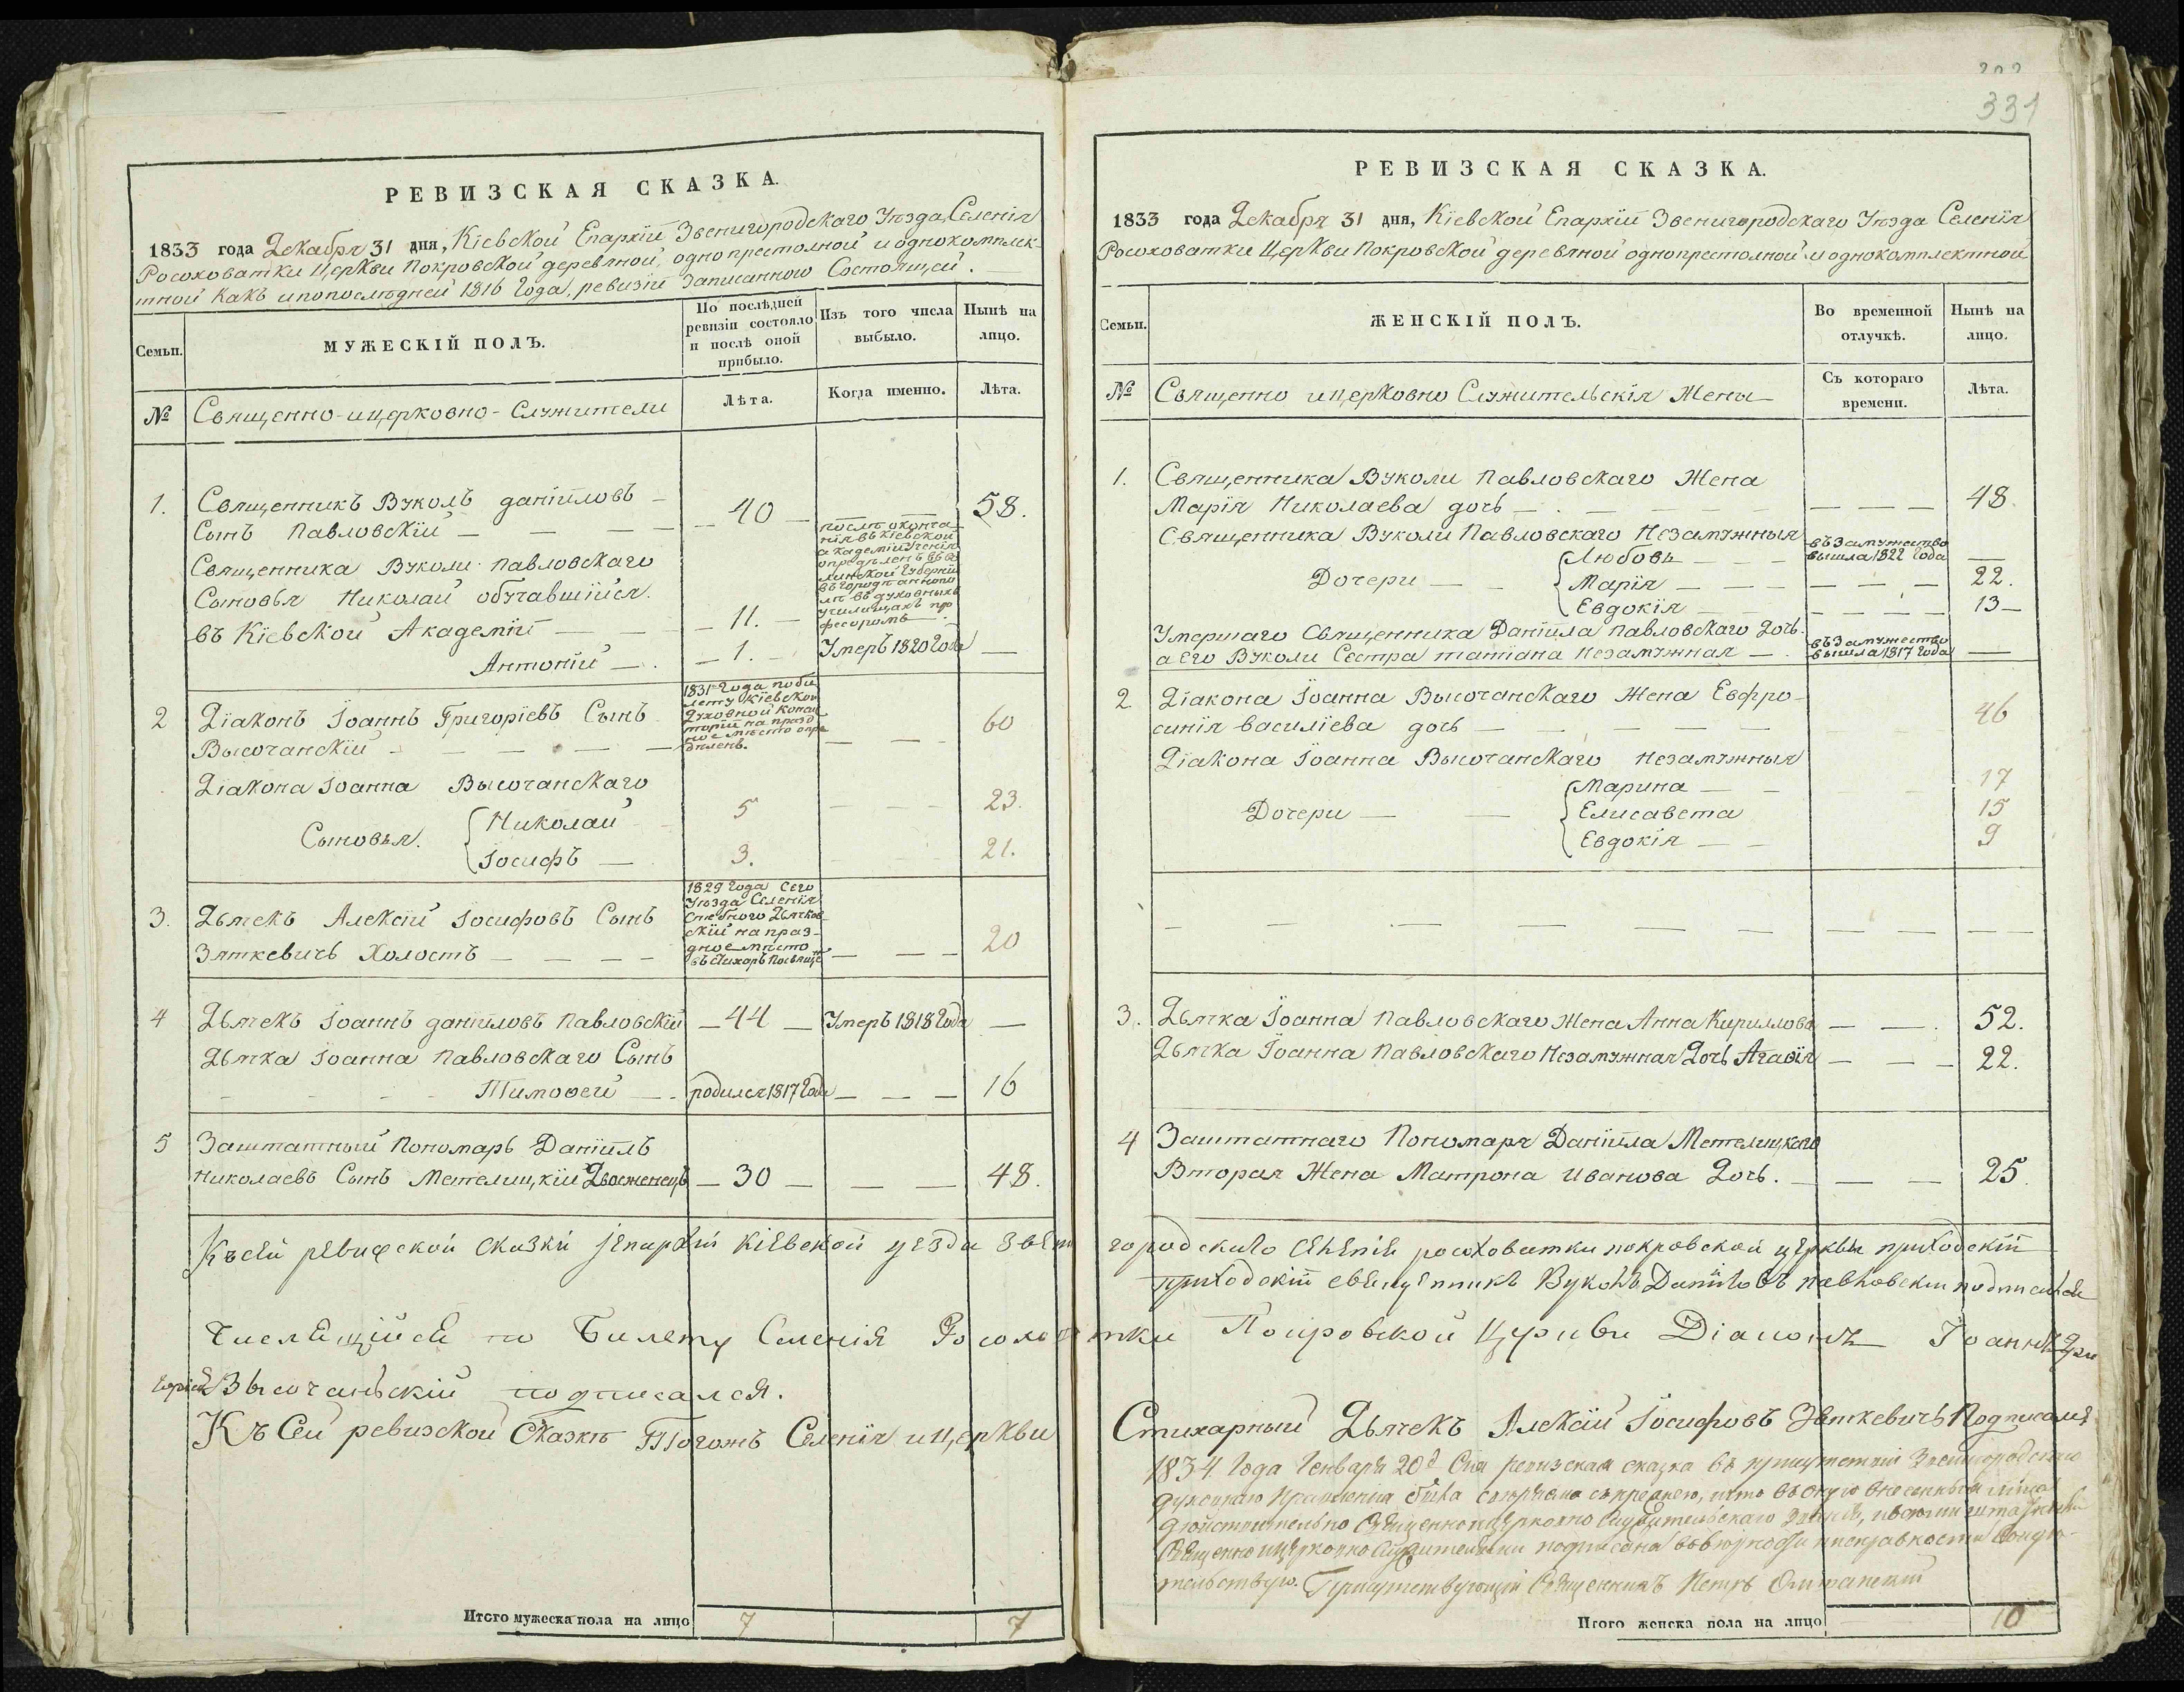 331
РЕВИЗСКАЯ СКАЗКА.
1833 года Декабря 31 дня, Кіевской Епархіи Звенигородскаго Уѣзда, Селенія
Росоховатки Церкви Покровской деревяной, однопрестолной и однокомплек-
тной какъ и по послѣдней 1816 года, ревизіи записанного Состоящей.
Семьи.
МУЖЕСКІЙ ПОЛЪ.
По послѣдней
ревизіи состояло
и послѣ оной
прибыло.
Изъ того числа
выбыло.
Нынѣ на
лицо.
№
Священно-и церковно-Служители
Лѣта.
Когда именно.
Лѣта.
1. Священникъ Вуколъ даніиловъ
Сынъ Павловскій — 40 — 58.
Священника Вуколи Павловскаго
Сыновья Николай обучавшійся
въ Кіевской Академіи — 11. —
послѣ оконча
нія въ кіевской
академіи ученія
опредѣленъ въ
губерніи
въ городѣ
въ духовныхъ
училищахъ про
фесоромъ
Антоній — 1. — Умеръ 1820 Года —
2 Діаконъ Іоаннъ Григоріевъ Сынъ
Высочанскій — — — 60
1831 года по би
лету Кіевской
Духовной конси
торіи на празд
ное мѣсто опре
дѣленъ.
Діакона Іоанна Высочанскаго
Сыновья. Николай 5 — — — 23.
Іосифъ — 3. 21.
3. Дьячекъ Алексій Іосифовъ Сынъ
Зяткевичъ Холостъ — — — 20
1829 года сего
Уѣзда Селенія
Стебного Дьячков-
скій на праз-
дное мѣсто
въ стихарь посвящ
4 Дьячекъ Іоаннъ даніиловъ Павловскій — 44 — Умеръ 1818 Года —
Дьячка Іоанна Павловскаго Сынъ
Тимоѳей — родился 1817 Года — — — 16
5 Заштатный Пономарь Даніилъ
Николаевъ Сынъ Метелицкій Двоеженецъ — 30 — — — 48.
Къ сей ревизской сказки Епархіи Кіевской уезда Звен
Числящійся по Билету Селенія Росохова
горіевъ Высочанскій подписался.
Къ Сей ревизской Сказкѣ Тогожъ Селенія и церкви
Итого мужеска пола на лицо 7 7
РЕВИЗСКАЯ СКАЗКА.
1833 года Декабря 31 дня, Кіевской Епархіи Звенигородскаго Уѣзда Селенія
Росоховатки Церкви Покровской деревяной однопрестолной и однокомплектной
Семьи.
ЖЕНСКІЙ ПОЛЪ.
Во временной
отлучкѣ.
Нынѣ на
лицо.
№
Священно и церковно Служительскія Жены
Съ котораго
времени.
Лѣта.
1. Священника Вуколи Павловскаго Жена
Марія Николаева дочь — — — — 48
Священника Вуколи Павловскаго Незамужныя
Дочери — Любовь — въ замужество вышла 1822 года —
Марія — — — 22.
Евдокія — — — 13—
Умершаго Священника Даніила Павловскаго Дочь
а его Вуколи Сестра татіана незамужная — въ замужество вышла 1817 года —
2. Діакона Іоанна Высочанскаго Жена Евфро-
синія василіева дочь — — — 46
Діакона Іоанна Высочанскаго незамужныя
Дочери — Марина — 17
Елисавета 15
Евдокія — 9
3. Дьячка Іоанна Павловскаго Жена Анна Кириллова — — 52.
Дьячка Іоанна Павловскаго Незамужная Дочь Агаѳія — — — 22.
4 Заштатнаго Пономаря Даніила Метелицкаго
Вторая Жена Матрона Иванова Дочь. — — — 25.
городскаго селенія росоховатки покровской церкви приходскій
приходскій священникъ Вуколъ Даніиловъ павловскій подписался
тки Покровской Церкви Діаконъ Іоаннъ Гри
Стихарный Дьячекъ Алексій Іосифовъ Зяткевичъ Подписался
1834 Года Генваря 20 д. Сія ревизская сказка въ присутствіи Звенигородскаго
духовнаго Правленія была сверяема съ прежнею, что въ оную внесенныя лица
дѣйствительно Священноицерковно Служительскаго званія, и
Священноицерковно Служителями подписана въ вѣрности и исправности свидѣ-
тельствую. Присутствующій Священникъ Петръ
Итого женска пола на лицо 10